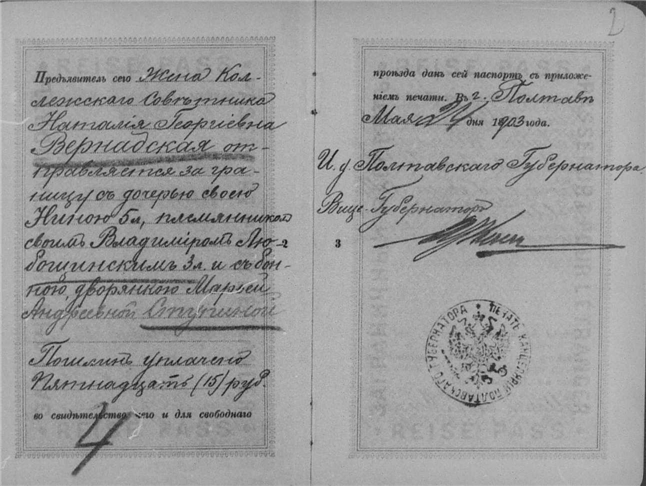 Предъявитель сего Жена Кол-
лежскаго Совѣтника
Наталія Георгіевна
Вернадская от-
правляется за гра-
ницу съ дочерью своею
Ниною 5 л., племянникомъ
своимъ Владиміромъ Лю-
бощинскимъ 3 л. и съ бон-
ною, дворянкою Марьей
Андреевной Ступиной
Пошлинъ уплачено
Пятнадцать (15) руб.
во свидѣтельство сего и для свободнаго
4
2
2
REISE PASS
REISE PASS
проѣзда данъ сей паспортъ съ приложе-
ніемъ печати. Въ г. Полтавѣ
Мая 24 дня 1903 года.
И. д. Полтавскаго Губернатора
Вице-Губернаторъ
3
ПЕЧАТЬ КАНЦЕЛЯРІИ ПОЛТАВСКАГО ГУБЕРНАТОРА
REISE PASS
REISE PASS